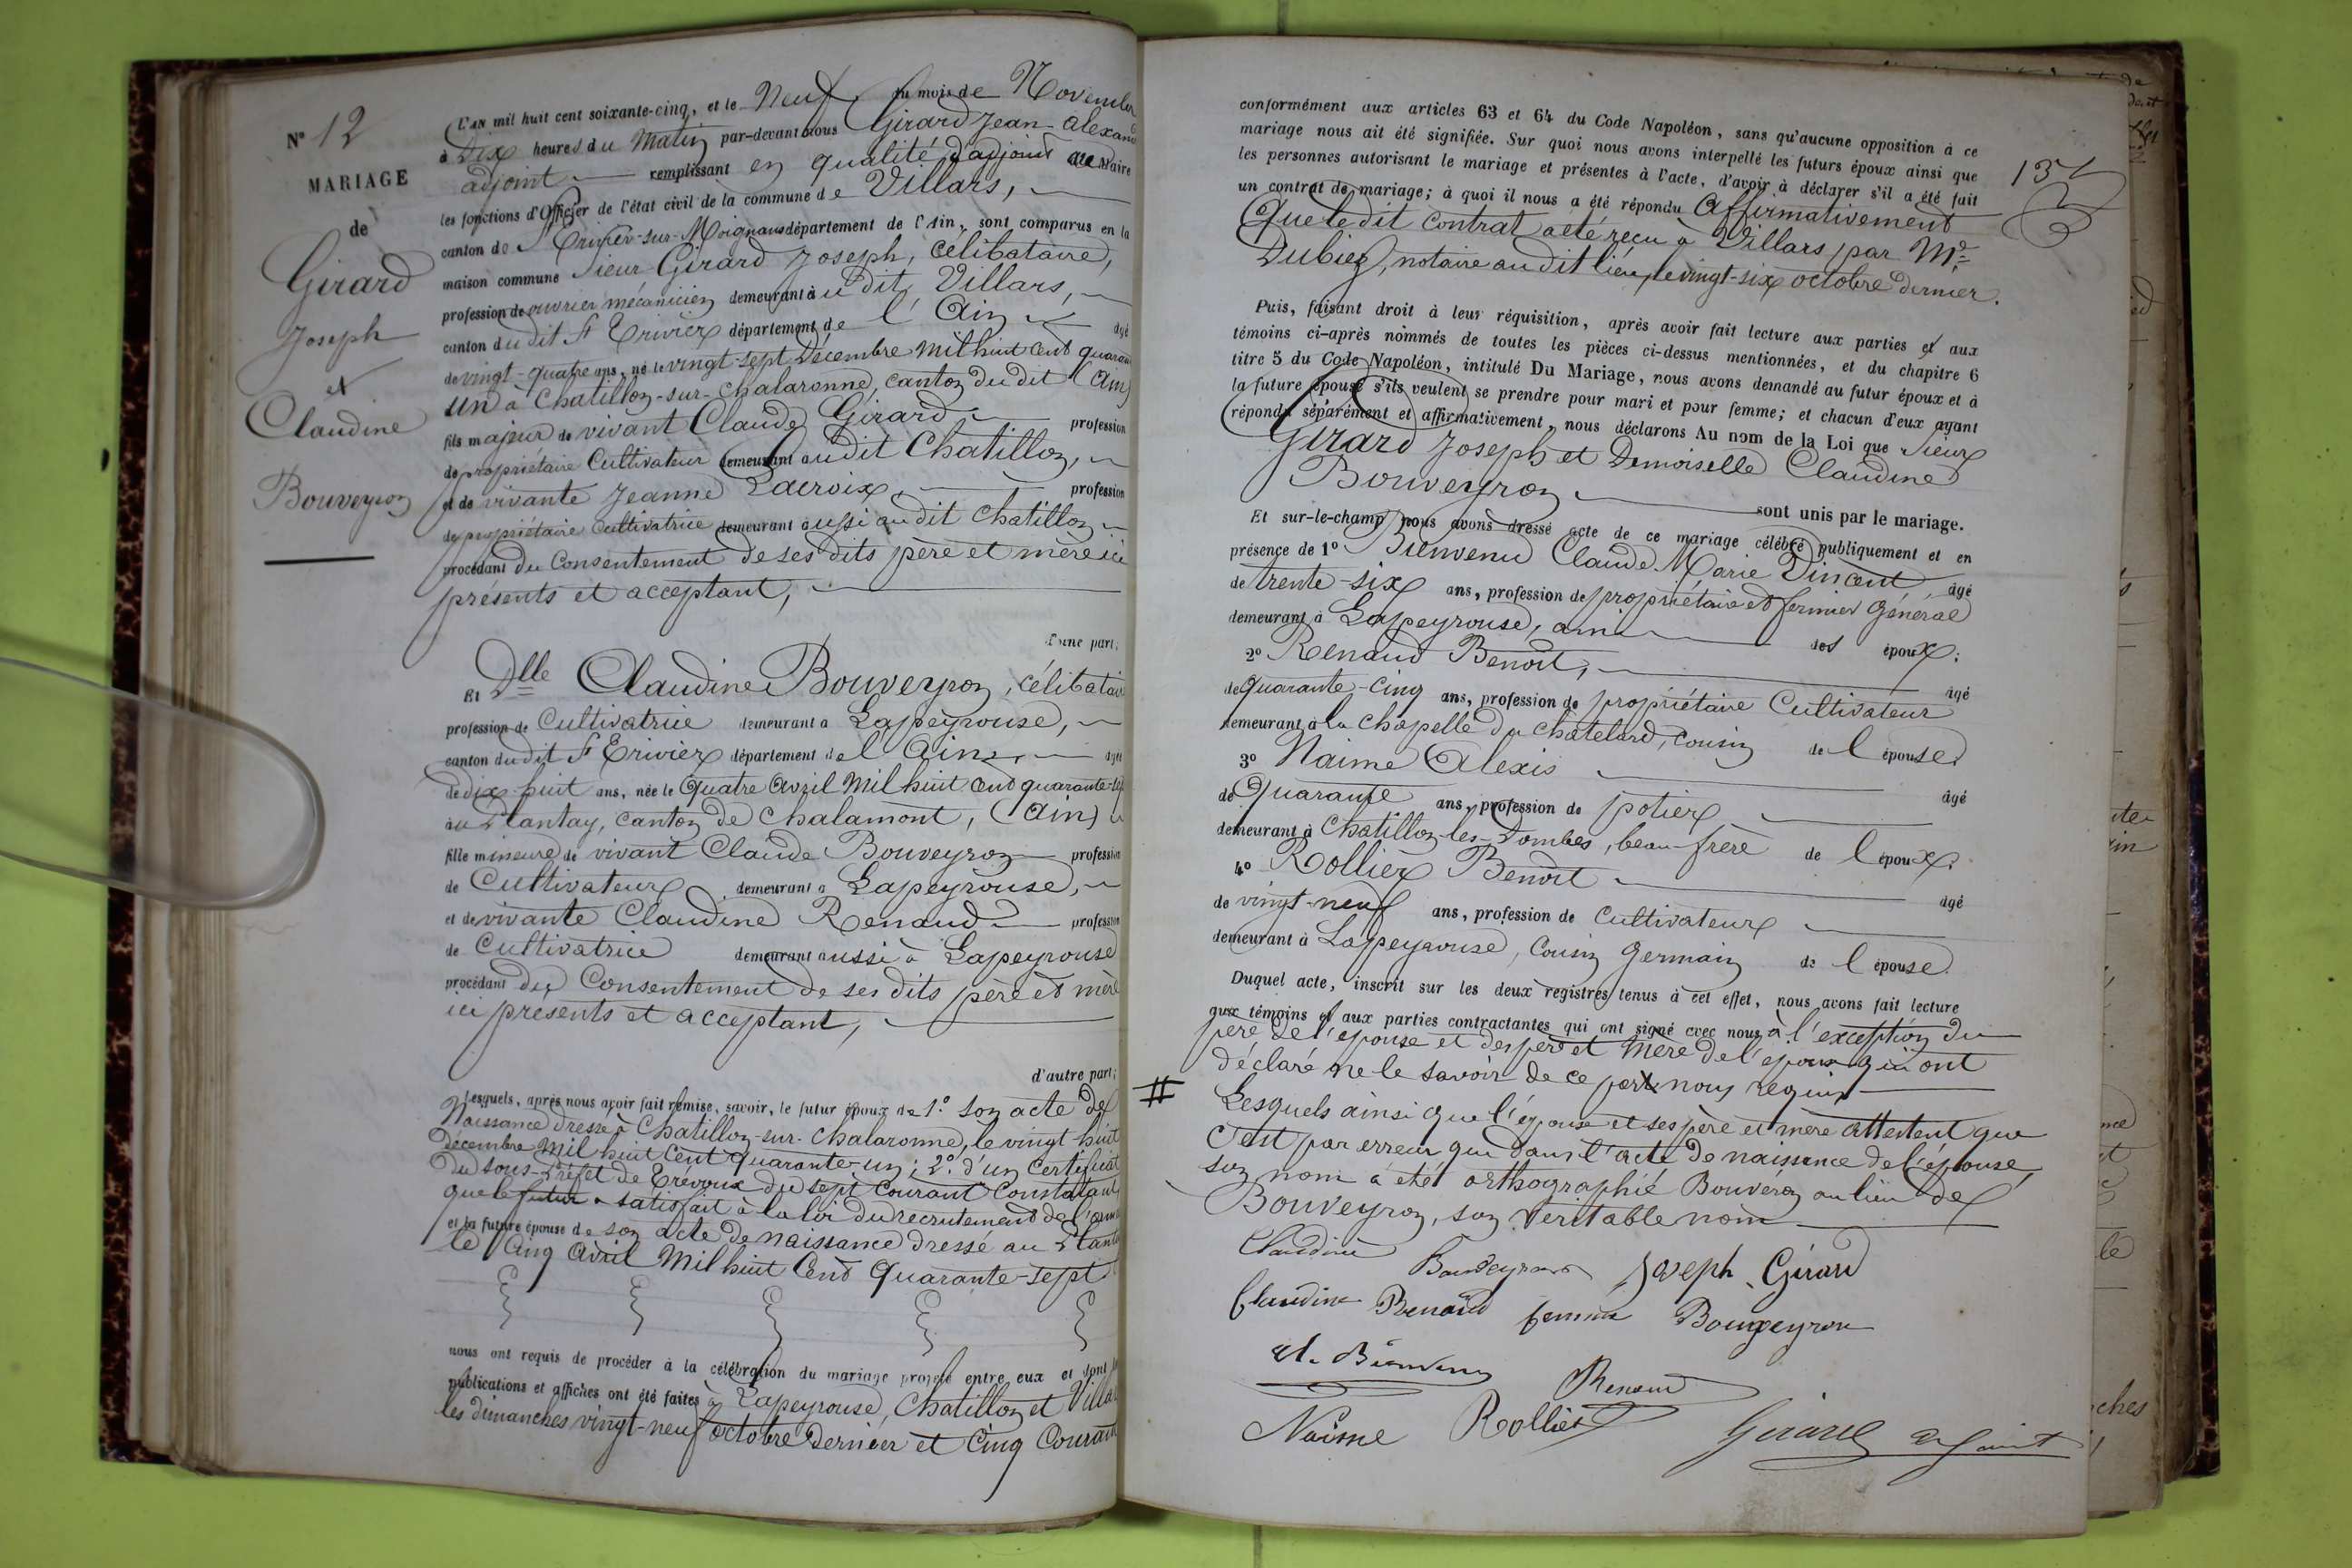 N° 12
MARIAGE
de
Girard
Joseph
et
Claudine
Bouveyron
L'AN mil huit cent soixante-cinq, et le Neuf du mois de Novembre
à Dix heures du Matin par-devant nous Girard Jean-Alexand
adjoint remplissant en qualité d'adjoint au Maire
les fonctions d'Officier de l'état civil de la commune de Villars,
canton de St Trivier-sur-Moignans département de l'Ain, sont comparus en la
maison commune Sieur Girard Joseph, célibataire,
profession de ouvrier mécanicien demeurant à udit Villars,
canton du dit St Trivier département de l'Ain âgé
de vingt-quatre ans, né le vingt-sept Décembre Mil huit cent quaran
un à Chatillon-sur-Chalaronne, canton du dit (Ain)
fils majeur de vivant Claude Girard profession
de propriétaire Cultivateur demeurant audit Chatillon,
et de vivante Jeanne Lacroix, profession
de propriétaire cultivatrice demeurant aussi au dit Chatillon
procédant du Consentement de ses dits père et mère ici
présents et acceptant,
d'une part,
Et Dlle Claudine Bouveyron, célibatair
profession de Cultivatrice demeurant à Lapeyrouse,
canton du dit St Trivier département de l'Ain, âgée
de dix-huit ans, née le Quatre Avril Mil huit Cent quarante-sep
au Plantay, canton de Chalamont, (Ain)
fille mineure de vivant Claude Bouveyron profession
de Cultivateur demeurant à Lapeyrouse,
et de vivante Claudine Renaud profession
de Cultivatrice demeurant aussi à Lapeyrouse
procédant du Consentement de ses dits père et mère
ici présents et acceptant,
d'autre part;
Lesquels, après nous avoir fait remise, savoir, le futur époux de 1° son acte de
Naissance dressé à Chatillon-sur-Chalaronne, le vingt-huit
décembre Mil huit Cent quarante-un; 2° d'un Certificat
du sous-Préfet de Trévoux du sept Courant Constatant
que le futur a satisfait à la loi du recrutement de l'arm
et la future épouse de son acte de naissance dressé au Planta
le Cinq Avril Mil huit Cent Quarante-sept
nous ont requis de procéder à la célébration du mariage projeté entre eux et dont
publications et affiches ont été faites à Lapeyrouse, Chatillon et Villa
les dimanches vingt-neuf octobre dernier et Cinq Courant
137
conformément aux articles 63 et 64 du Code Napoléon, sans qu'aucune opposition à ce
mariage nous ait été signifiée. Sur quoi nous avons interpellé les futurs époux ainsi que
les personnes autorisant le mariage et présentes à l'acte, d'avoir à déclarer s'il a été fait
un contrat de mariage; à quoi il nous a été répondu Affirmativement
Que le dit contrat a été reçu à Villars, par Me
Dubiez, notaire au dit lieu, le vingt-six octobre dernier.
Puis, faisant droit à leur réquisition, après avoir fait lecture aux parties et aux
témoins ci-après nommés de toutes les pièces ci-dessus mentionnées, et du chapitre 6
titre 5 du Code Napoléon, intitulé Du Mariage, nous avons demandé au futur époux et à
la future épouse s'ils veulent se prendre pour mari et pour femme; et chacun d'eux ayant
répondu séparément et affirmativement, nous déclarons Au nom de la Loi que Sieur
Girard Joseph et Demoiselle Claudine
Bouveyron
sont unis par le mariage.
Et sur-le-champ nous avons dressé acte de ce mariage célébré publiquement et en
présence de 1° Bienvenu Claude Marie Vincent âgé
de trente-six ans, profession de propriétaire et fermier Général
demeurant à Lapeyrouse, ami des époux;
2° Renaud Benoit, âgé
de quarante-cinq ans, profession de propriétaire Cultivateur
demeurant à la Chapelle du Chatelard, cousin de l'épouse.
3° Naime Alexis âgé
de Quarante ans, profession de potier
demeurant à Chatillon-les-Dombes, beau-frère de l'époux.
4° Rollier Benoit âgé
de vingt-neuf ans, profession de Cultivateur
demeurant à Lapeyrouse, Cousin Germain de l'épouse.
Duquel acte, inscrit sur les deux registres tenus à cet effet, nous avons fait lecture
aux témoins et aux parties contractantes qui ont signé avec nous à l'exception du
père de l'épouse et des père et Mère de l'époux qui ont
déclaré ne le savoir de ce par nous requis
# Lesquels ainsi que l'épouse et ses père et mère attestent que
c'est par erreur que dans l'acte de naissance de l'épouse,
son nom a été orthographié Bouveron au lieu de
Bouveyron, son véritable nom
Claudine Bouveyron Joseph Girard
Claudine Renaud femme Bouveyron
Bienvenu
Renaud
Naime Rollier Girard adjoint